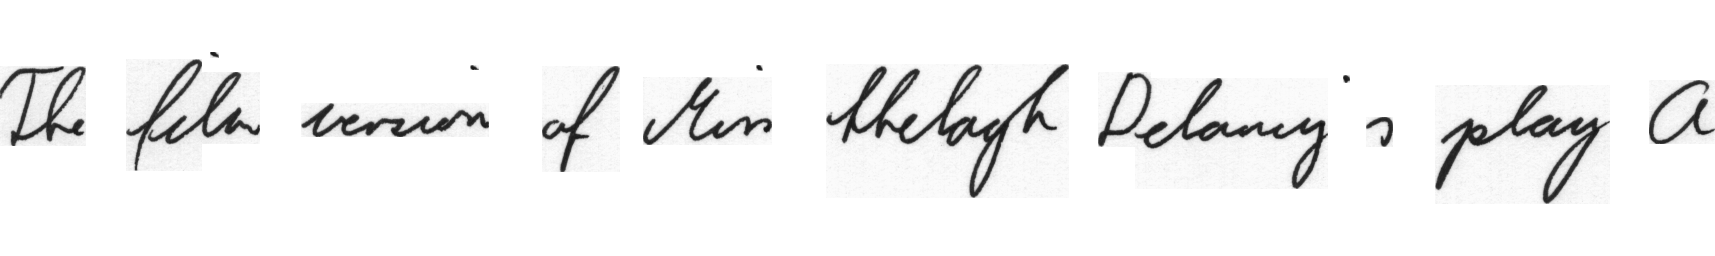 The film version of Miss Shelagh Delaney's play A